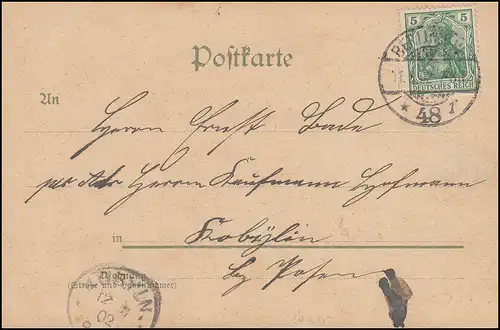 5 5
DEUTSCHES REICH
BERLIN
48 f
Postkarte
An
Herrn Ernst Bade
per Adr Herrn Kaufmann Hofmann
in Kobylin
bz Posen
Wohnung
(Straße und Hausnummer)
12
02